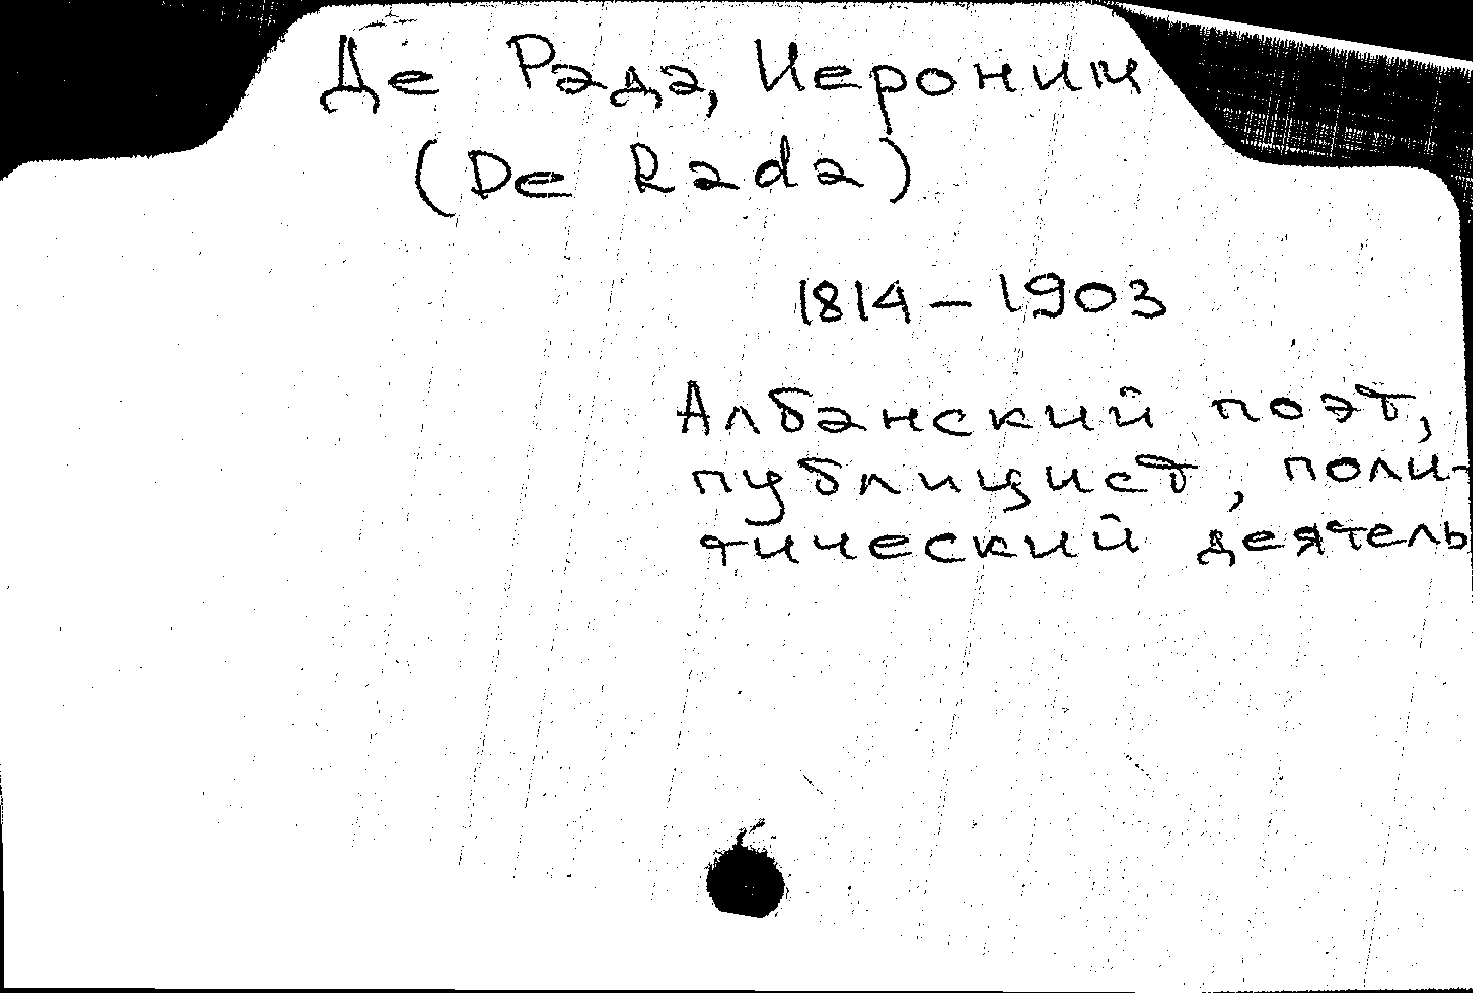 Де Рада, Иероним
(De Rada)
1814 – 1903
Албанский поэт,
публицист, поли-
тический деятель